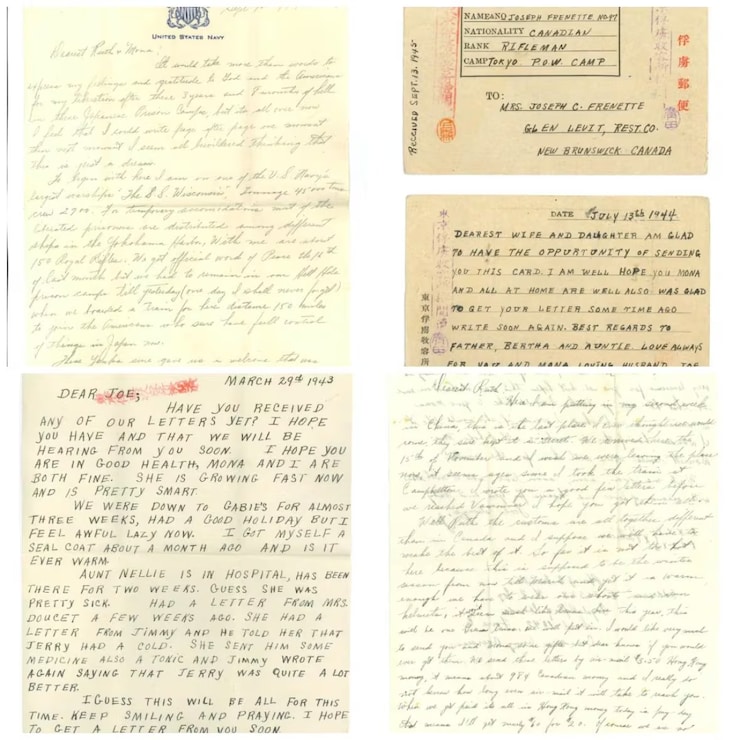 UNITED STATES NAVY
Dearest Ruth & Mona:
It would take more than words to
express my feelings and gratitude to God and the Americans
for my liberation after these 3 years and 8 months of hell
in these Japanese Prison Camps, but its all over now
I feel that I could write page after page one moment
then next moment I seem so bewildered thinking that
this is just a dream.
To begin with here I am on one of the U.S. Navy's
largest warships "The S.S. Wisconsin". Tonnage 45000 tons
crew 2700. For temporary accomodations most of the
liberated prisoners are distributed among different
ships in the Yokohama Harbor, With me are about
150 Royal Rifles. We got official word of Peace the 16th
of last month but we had to remain in our Hell Hole
prison camps till yesterday (one day I shall never forget)
when we boarded a train for here distance 150 miles
to join the Americans who sure have full control
of things in Japan now.
These Yanks sure gave us a welcome that was
NAME&NO JOSEPH FRENETTE NO.97
NATIONALITY CANADIAN
RANK RIFLEMAN
CAMP TOKYO P.O.W. CAMP
俘虜郵便
RECEIVED SEPT. 13, 1945
TO:
MRS. JOSEPH C. FRENETTE
GLEN LEVIT, REST. CO.
NEW BRUNSWICK CANADA
DATE JULY 13th 1944
DEAREST WIFE AND DAUGHTER AM GLAD
TO HAVE THE OPPURTUNITY OF SENDING
YOU THIS CARD. I AM WELL HOPE YOU MONA
AND ALL AT HOME ARE WELL ALSO WAS GLAD
TO GET YOUR LETTER SOME TIME AGO
WRITE SOON AGAIN. BEST REGARDS TO
FATHER, BERTHA AND AUNTIE. LOVE ALWAYS
FOR YOU AND MONA LOVING HUSBAND JOE
東京俘虜收容所
MARCH 29th 1943
DEAR JOE;
HAVE YOU RECEIVED
ANY OF OUR LETTERS YET? I HOPE
YOU HAVE AND THAT WE WILL BE
HEARING FROM YOU SOON. I HOPE YOU
ARE IN GOOD HEALTH, MONA AND I ARE
BOTH FINE. SHE IS GROWING FAST NOW
AND IS PRETTY SMART.
WE WERE DOWN TO GABIE'S FOR ALMOST
THREE WEEKS, HAD A GOOD HOLIDAY BUT I
FEEL AWFUL LAZY NOW. I GOT MYSELF A
SEAL COAT ABOUT A MONTH AGO AND IS IT
EVER WARM.
AUNT NELLIE IS IN HOSPITAL, HAS BEEN
THERE FOR TWO WEEKS. GUESS SHE WAS
PRETTY SICK. HAD A LETTER FROM MRS.
DOUCET A FEW WEEKS AGO. SHE HAD A
LETTER FROM JIMMY AND HE TOLD HER THAT
JERRY HAD A COLD. SHE SENT HIM SOME
MEDICINE ALSO A TONIC AND JIMMY WROTE
AGAIN SAYING THAT JERRY WAS QUITE A LOT
BETTER.
I GUESS THIS WILL BE ALL FOR THIS
TIME. KEEP SMILING AND PRAYING. I HOPE
TO GET A LETTER FROM YOU SOON.
Dearest Ruth
Here I am putting in my second week
in China, this is the last place I ever thought we would
come, they sure kept it a secret. We arrived here the
15th of November and I wish we were leaving the place
now, it seems ages since I took the train at
Campbellton. I wrote you a good few letters before
we reached Vancouver I hope you got them
Well Ruth the customs are all together different
than in Canada and I suppose we will have to
make the best of it. So far it is not to hot
here because this is supposed to be the winter
season from now till March and yet it is warm
enough we have to wear our shorts and
helmets, it don't seem like Xmas for this year, this
will be one Xmas I would like very much
to send you and Mona some gifts but dear knows if you would
ever get them. We send these letters by air mail $3.50 Hong Kong
money, it means about 98¢ Canadian money and I really do
not know how long even air mail it will take to reach you.
When we get paid its all in Hong Kong money today is pay day
that means I'll get nearly $60 for $20. Of course we